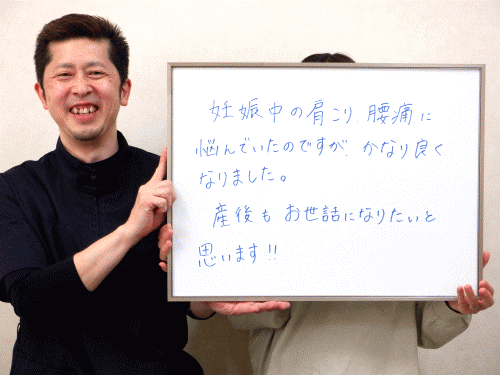 妊娠中の肩こり、腰痛に
悩んでいたのですが、かなり良く
なりました。
産後も お世話になりたいと
思います!!